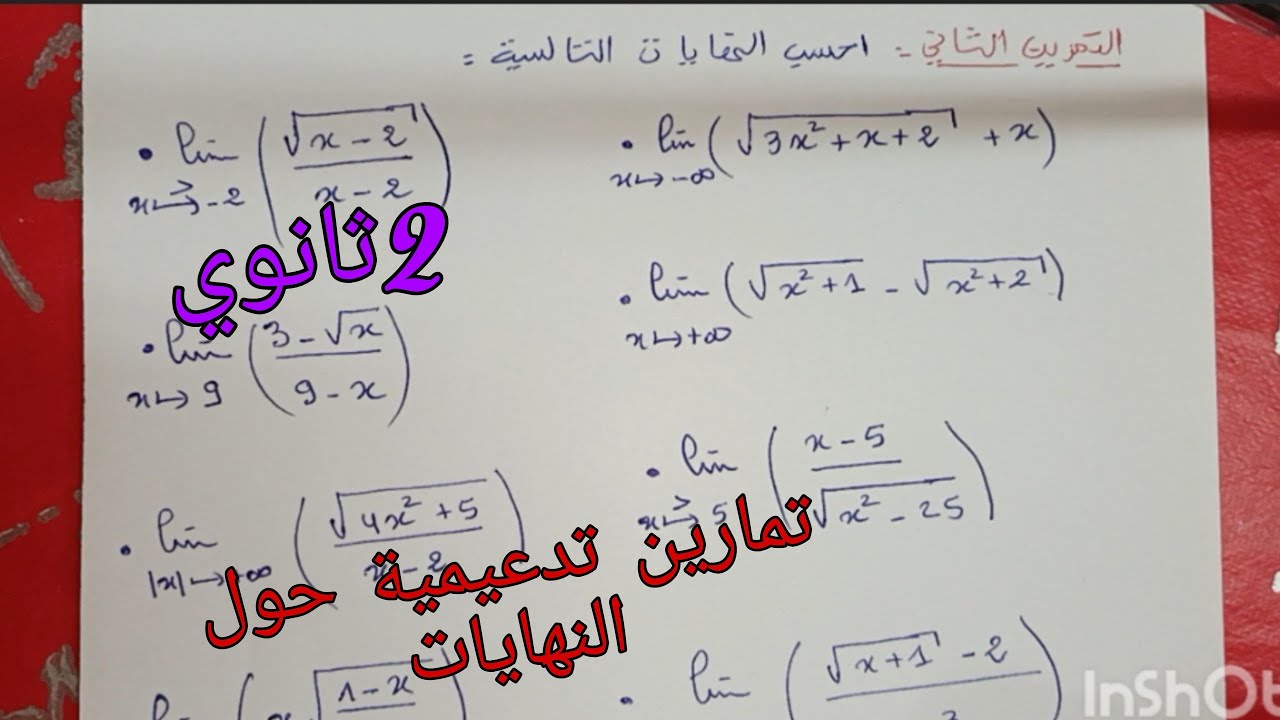 التمرين الثاني : احسب النهايات التالية :
• lim x→-∞ (√(3x²+x+2) + x)
• lim x→>-2 (√(x-2) / (x-2))
2ثانوي
• lim x→+∞ (√(x²+1) - √(x²+2))
• lim x→9 ((3-√x) / (9-x))
• lim x→>5 ((x-5) / √(x²-25))
• lim |x|→+∞ (√(4x²+5) / (x-2))
تمارين تدعيمية حول
النهايات
• lim ((√(x+1) - 2) /
• lim (x√(1-x
InShOt